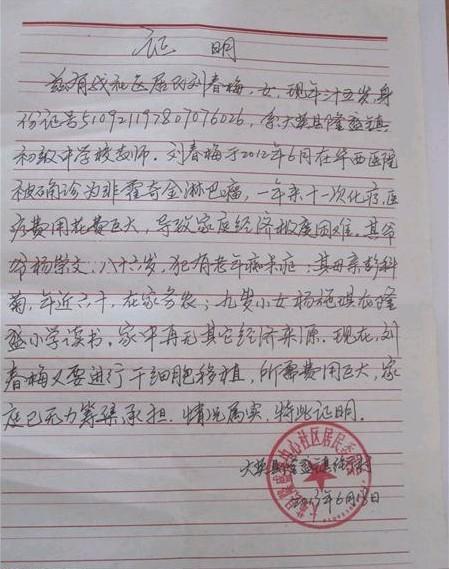 证 明
兹有我社区居民刘春梅，女，现年三十五岁，身
份证号510921197807076026，系大英县隆盛镇
初级中学校教师。刘春梅于2012年6月在华西医院
被确诊为非霍奇金淋巴瘤，一年来十一次化疗，医
疗费用花费巨大，导致家庭经济极度困难。其爷
爷杨荣文，八十六岁，犯有老年痴呆症；其母亲彭科
菊，年近六十，在家务农；九岁小女杨施琪在隆
盛小学读书，家中再无其它经济来源。现在，刘
春梅又要进行干细胞移植，所需费用巨大，家
庭已无力筹集承担。情况属实，特此证明。
大英县隆盛镇
2013年6月18日
中心社区居民委员会